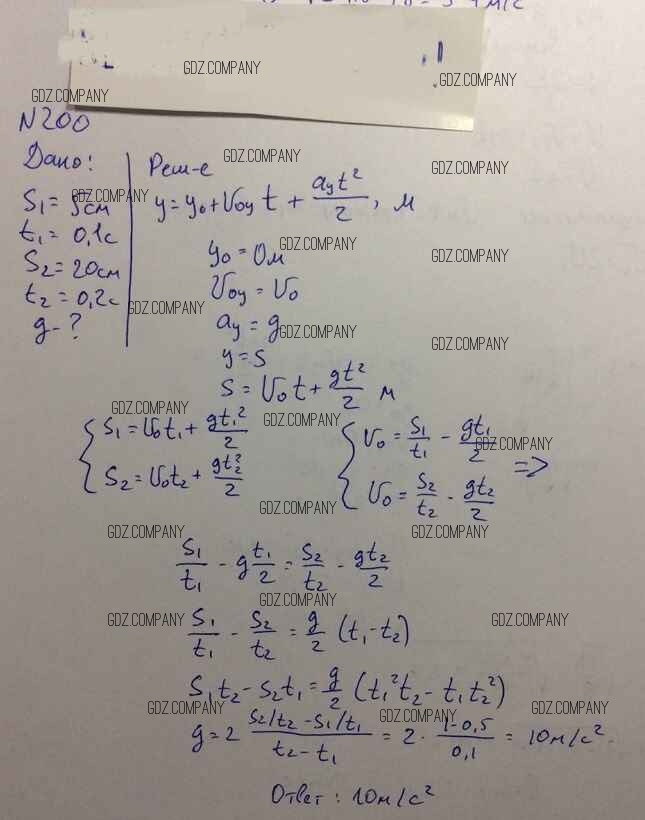 N200
Дано:
S₁ = 5см
t₁ = 0,1с
S₂ = 20см
t₂ = 0,2с
g - ?
Реш-е
y = y₀ + V₀y t + ayt²/2, м
y₀ = 0м
V₀y = V₀
ay = g
y = S
S = V₀t + gt²/2 м
{ S₁ = V₀t₁ + gt₁²/2
S₂ = V₀t₂ + gt₂²/2
{ V₀ = S₁/t₁ - gt₁/2
V₀ = S₂/t₂ - gt₂/2
=>
S₁/t₁ - g t₁/2 = S₂/t₂ - gt₂/2
S₁/t₁ - S₂/t₂ = g/2 (t₁ - t₂)
S₁t₂ - S₂t₁ = g/2 (t₁²t₂ - t₁t₂²)
g = 2 S₂/t₂ - S₁/t₁ / t₂ - t₁ = 2 · 1-0,5 / 0,1 = 10м/с².
Ответ: 10м/с²
GDZ.COMPANY
GDZ.COMPANY
GDZ.COMPANY
GDZ.COMPANY
GDZ.COMPANY
GDZ.COMPANY
GDZ.COMPANY
GDZ.COMPANY
GDZ.COMPANY
GDZ.COMPANY
GDZ.COMPANY
GDZ.COMPANY
GDZ.COMPANY
GDZ.COMPANY
GDZ.COMPANY
GDZ.COMPANY
GDZ.COMPANY
GDZ.COMPANY
GDZ.COMPANY
GDZ.COMPANY
GDZ.COMPANY
GDZ.COMPANY
GDZ.COMPANY
GDZ.COMPANY